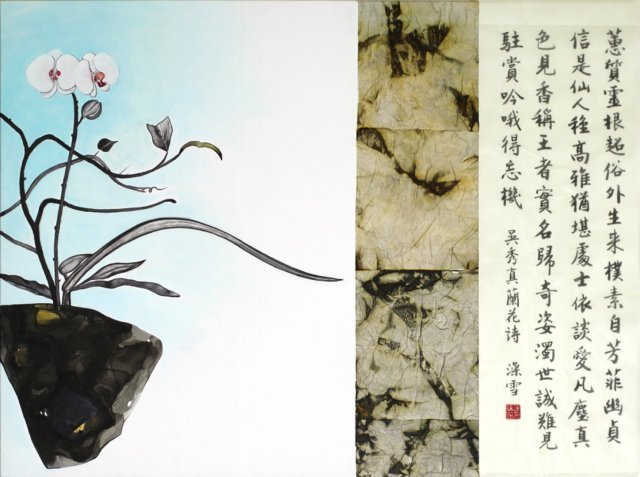 蕙質靈根超俗外生来樸素自芳菲幽貞
信是仙人種高雅猶堪處士依談愛凡塵真
色見香稱王者實名歸奇姿濁世誠難見
駐賞吟哦得忘機
吳秀真蘭花诗 深雪